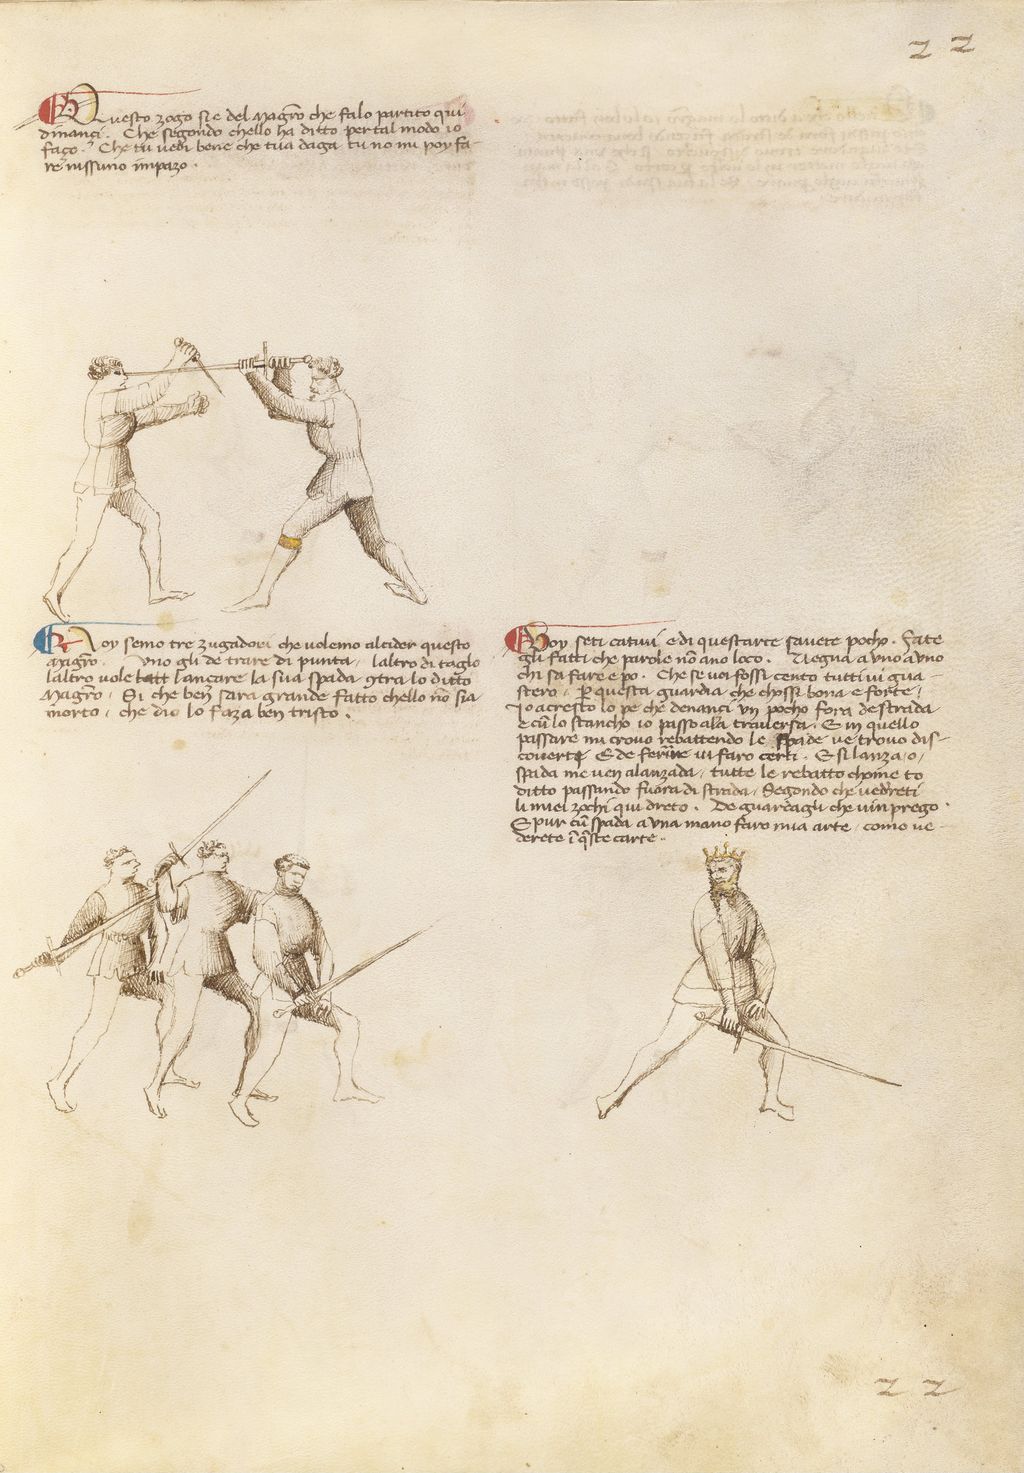 22
Questo zogo si e del Magro che fa lo partito qui
dinanci. Che segondo chello ha ditto per tal modo io
faço. Che tu vedi bene che tua daga tu no mi poy fa-
re nissuno impazo.
Noy semo tre zugadori che volemo alcider questo
magro. Uno gli de trare di punta, laltro di taglo
laltro vole lançare la sua spada contra lo ditto
Magro, Si che ben sara grande fatto chello non sia
morto, che dio lo faza ben tristo.
Voy seti cativi e di questarte savete pocho. Fate
gli fatti che parole non ano loco. Vegna a uno a uno
chi sa fare e po. Che se voi fossi cento tutti vi gua-
stero, per questa guardia che chossi bona e forte,
Io acresco lo pe che denanci un pocho fora de strada
e cum lo stancho io passo ala traversa. E in quello
passare mi crovo rebattendo le spade ve trovo dis-
coverti E de ferire vi faro certi. E si lanza, o,
spada me ven alanzada, tutte le rebatto chome to
ditto passando fuora di strada, Segondo che vedreti
li miei zochi qui dreto. De guardagli che vin prego.
E pur cum spada a una mano faro mia arte, como ve-
derete in queste carte.
22